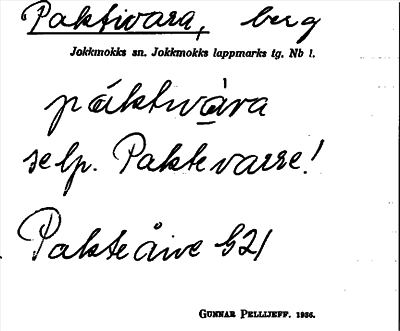 Paktivara, berg
Jokkmokks sn. Jokkmokks lappmarks tg. Nb l.
páktivára
se lp. Paktevarre!
Pakteåive G21
GUNNAR PELLIJEFF. 1956.